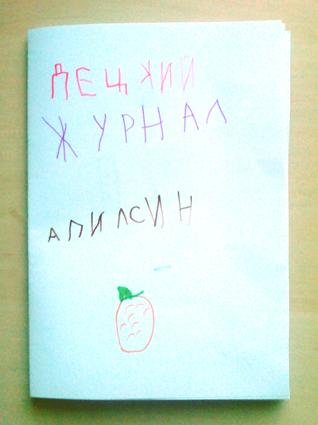 ДЕЦКИЙ
ЖУРНАЛ
АПИЛСИН